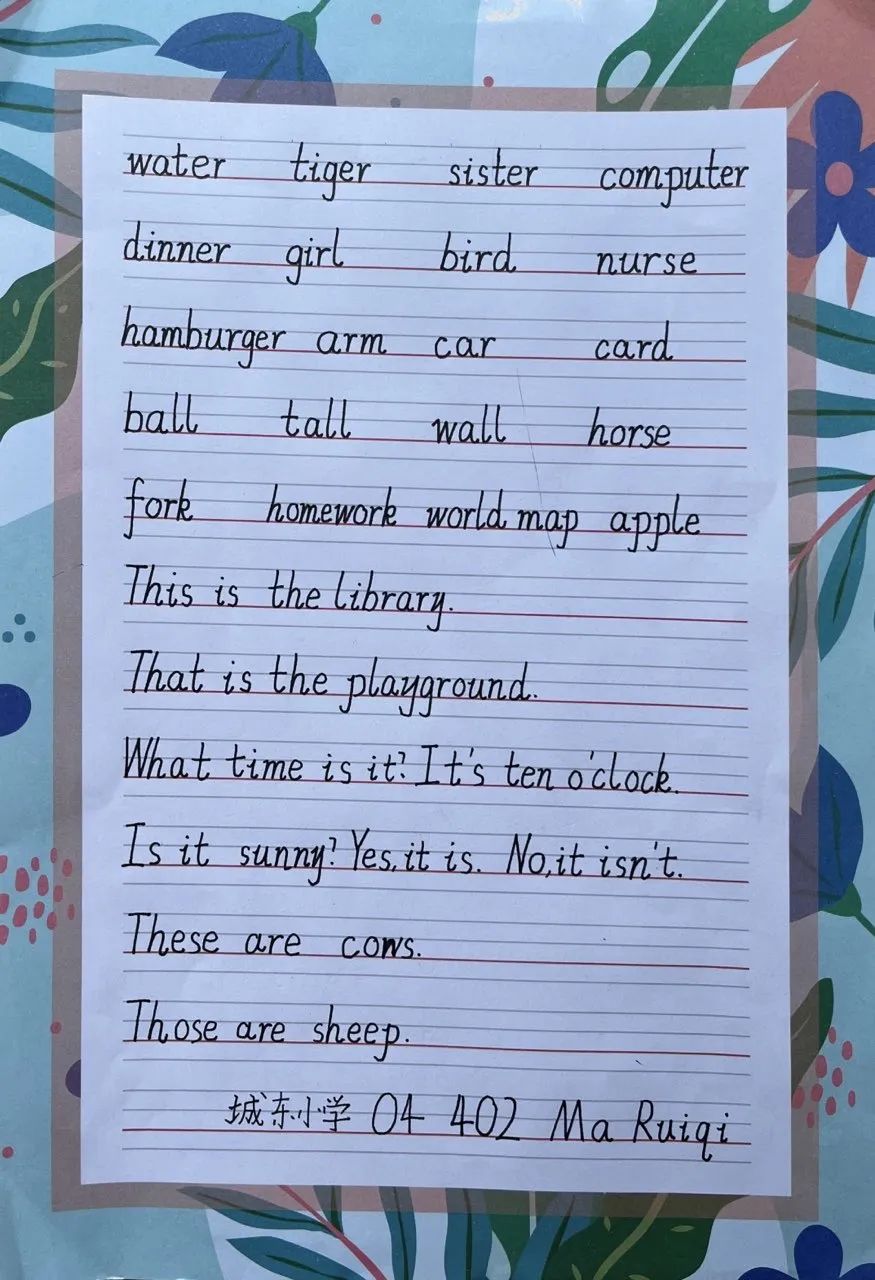 water tiger sister computer
dinner girl bird nurse
hamburger arm car card
ball tall wall horse
fork homework world map apple
This is the library.
That is the playground.
What time is it? It's ten o'clock.
Is it sunny? Yes,it is. No,it isn't.
These are cows.
Those are sheep.
城东小学 04 402 Ma Ruiqi